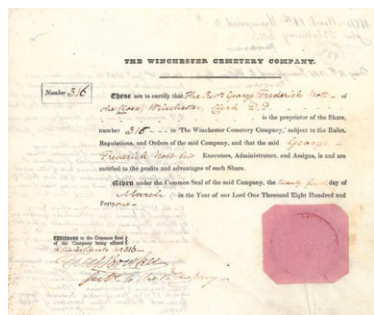 THE WINCHESTER CEMETERY COMPANY.
Number 316
These are to certify that The Revd. George Frederick Nott - of
the Close, Winchester, Clerk D.D.
is the proprietor of the Share,
number 316 in 'The Winchester Cemetery Company,' subject to the Rules,
Regulations, and Orders of the said Company, and that the said George
Frederick Nott his Executors, Administrators, and Assigns, is and are
entitled to the profits and advantages of such Share.
Given under the Common Seal of the said Company, the twenty day of
March in the Year of our Lord One Thousand Eight Hundred and
Forty one
Witness to the Common Seal
of the Company being affixed
to 316